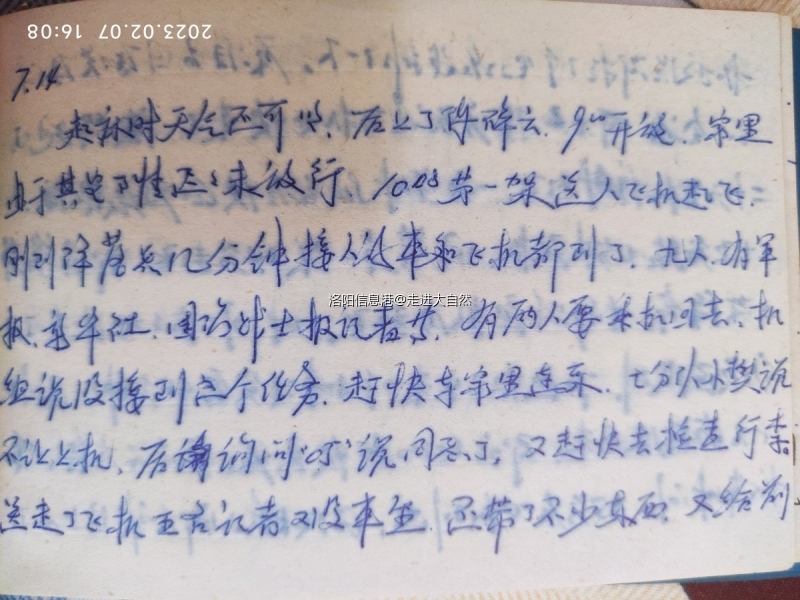 2023.02.07 16:08
7.14
起床时天气还可以，后上了阵碎云，9⁰⁰开放，家里
由于其它事情迟迟未放行，10⁰⁸第一架送人飞机起飞，
刚到降落点几分钟接人的车和飞机都到了，九人，有军
报，新华社，国防战士报记者等，有两人要乘机回去，机
组说没接到这个任务，赶快与家里连系，
说
不让上机，后询问说同意了，又赶快去检查行李
送走了飞机五名记者又没车坐，还带了不少东西，又给
洛阳信息港@走进大自然